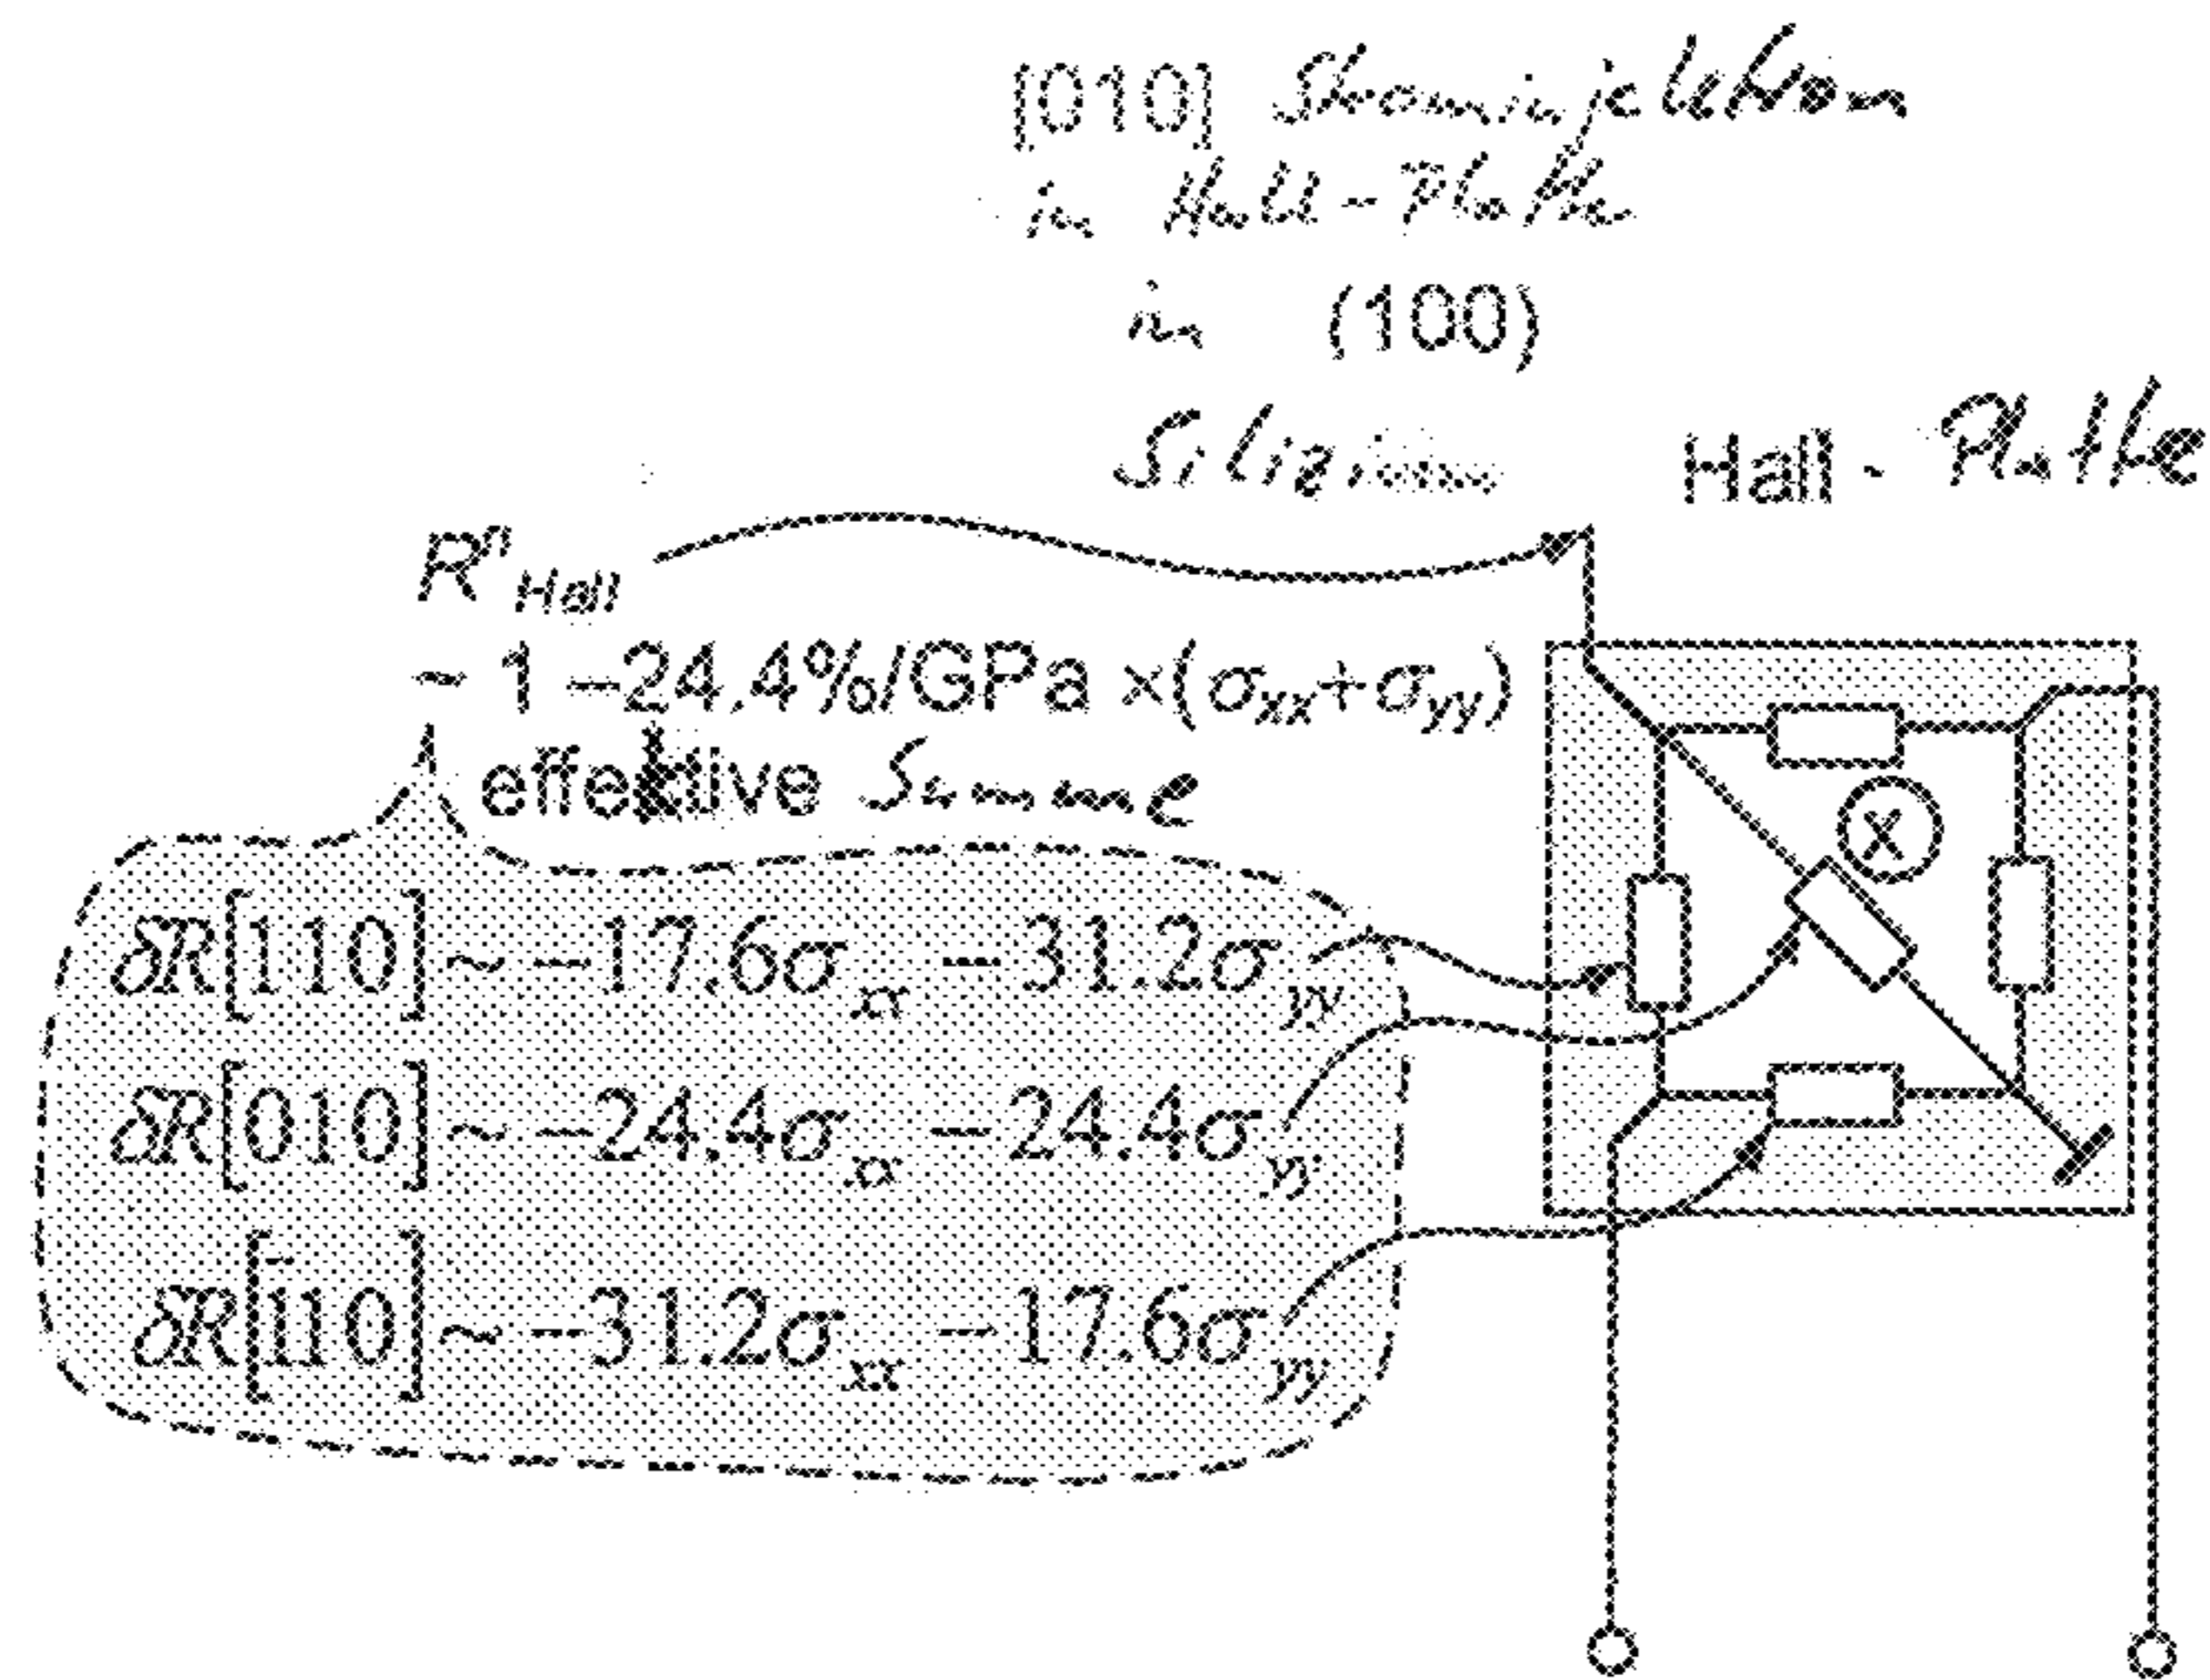 [010] Strominjektion
in Hall-Platte
in (100)
Silizium
Hall-Platte
Rⁿ_Hall
~ 1 –24.4%/GPa ×(σxx+σyy)
effektive Summe
δR[110]~−17.6σxx −31.2σyy
δR[010]~−24.4σxx −24.4σyy
δR[1̄10]~−31.2σxx −17.6σyy
X